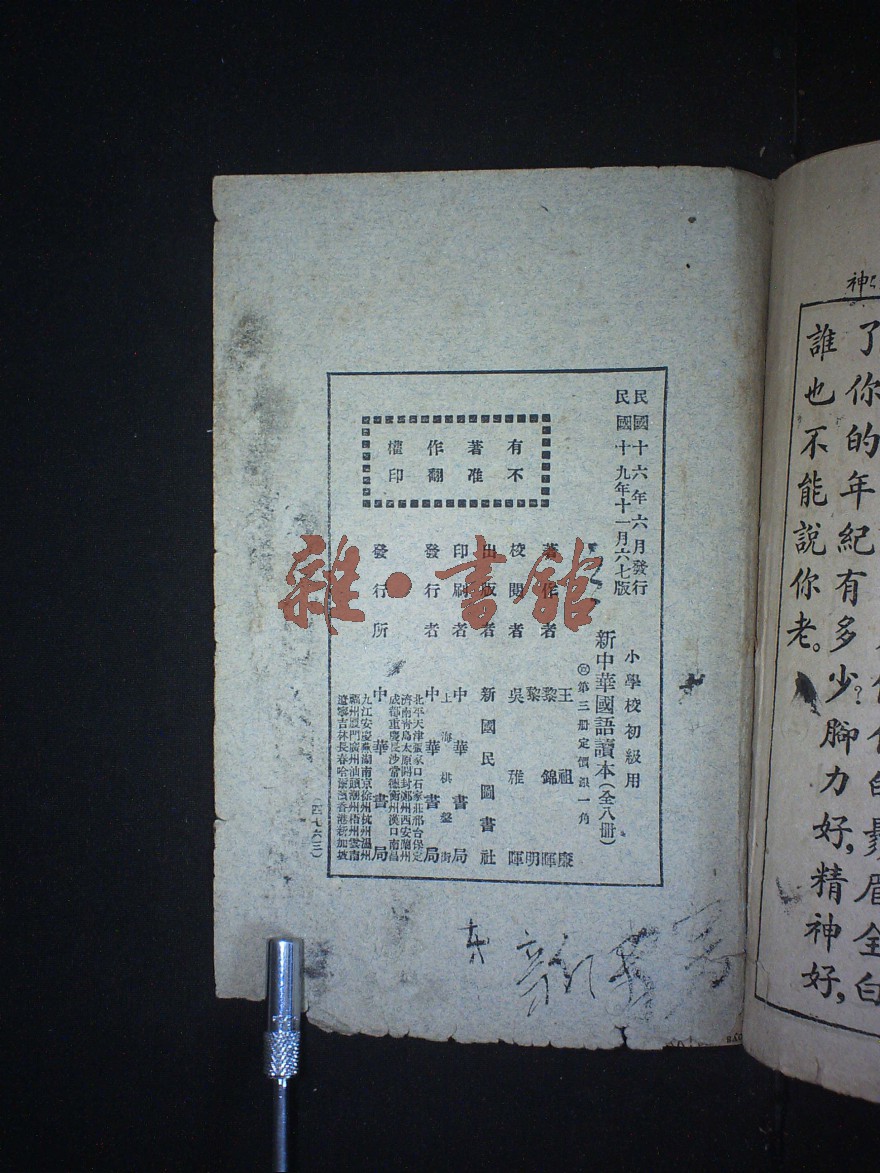 神
了你的年紀有多少？腳力好，精神好，
誰也不能說你老。
民國十六年六月發行
民國十九年十一月六七版
小學校初級用
新中華國語讀本（全八冊）
第三冊定價銀一角
有著作權
不准翻印
著作者 王祖廉 黎錦暉 黎明
校閱者 吳稚暉
出版者 新國民圖書社
印刷者 中華書局
上海棋盤街
發行者 中華書局
發行所 中華書局
北平天津張家口石家莊邢台保定
濟南青島太原開封鄭州西安蘭州
成都重慶長沙常德衡州漢口南昌
九江安慶蕪湖南京徐州杭州溫州
福州廈門廣州汕頭潮州梧州雲南
遼寧吉林長春哈爾濱香港新加坡
（四七六三）
雜·書館